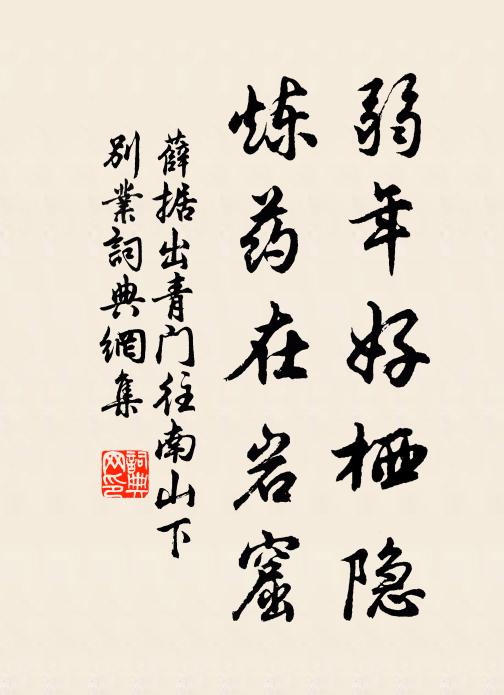 弱年好栖隐
炼药在岩窟
薛据出青门往南山下
别业詞典網集
詞典网印